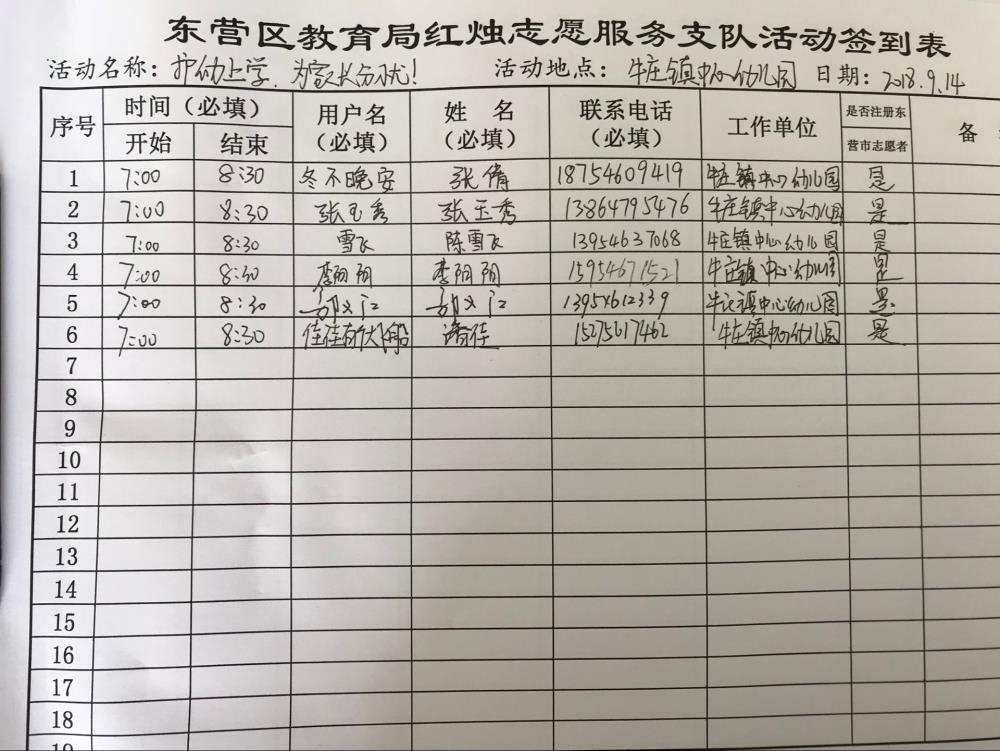 东营区教育局红烛志愿服务支队活动签到表
活动名称：护幼上学，为家长分忧！ 活动地点：牛庄镇中心幼儿园 日期：2018.9.14
序号 时间（必填） 用户名（必填） 姓 名（必填） 联系电话（必填） 工作单位 是否注册东营市志愿者 备
开始 结束
1 7:00 8:30 冬不晚安 张倩 18754609419 牛庄镇中心幼儿园 是
2 7:00 8:30 张玉秀 张玉秀 13864795476 牛庄镇中心幼儿园 是
3 7:00 8:30 雪飞 陈雪飞 13954637068 牛庄镇中心幼儿园 是
4 7:00 8:30 李阴阴 李阴阴 15954671521 牛庄镇中心幼儿园 是
5 7:00 8:30 13954612339 牛庄镇中心幼儿园 是
6 7:00 8:30 15275617462 牛庄镇中心幼儿园 是
7
8
9
10
11
12
13
14
15
16
17
18
19